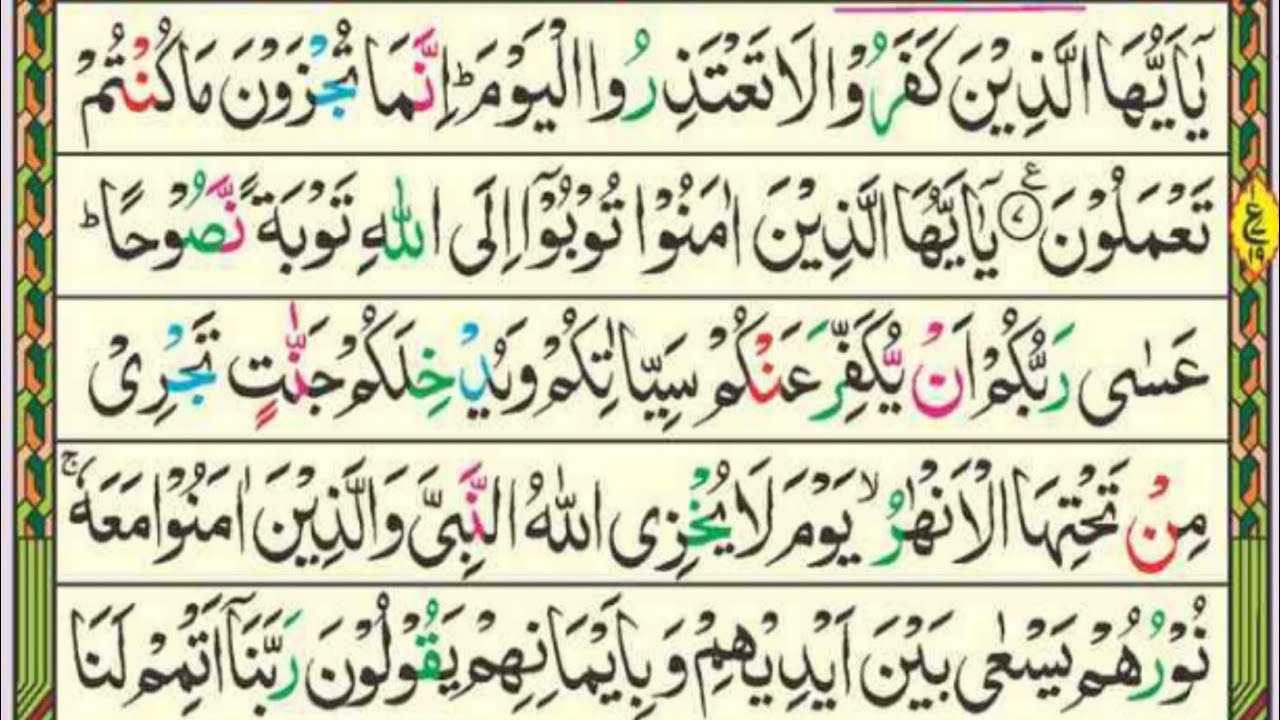 يٰۤاَيُّهَا الَّذِيْنَ كَفَرُوْا لَا تَعْتَذِرُوا الْيَوْمَ ؕ اِنَّمَا تُجْزَوْنَ مَا كُنْتُمْ
تَعْمَلُوْنَ ۧ۷ يٰۤاَيُّهَا الَّذِيْنَ اٰمَنُوْا تُوْبُوْۤا اِلَى اللّٰهِ تَوْبَةً نَّصُوْحًا ؕ
عَسٰى رَبُّكُمْ اَنْ يُّكَفِّرَ عَنْكُمْ سَيِّاٰتِكُمْ وَيُدْخِلَكُمْ جَنّٰتٍ تَجْرِىْ
مِنْ تَحْتِهَا الْاَنْهٰرُ ۙ يَوْمَ لَا يُخْزِى اللّٰهُ النَّبِىَّ وَالَّذِيْنَ اٰمَنُوْا مَعَهٗ ۚ
نُوْرُهُمْ يَسْعٰى بَيْنَ اَيْدِيْهِمْ وَبِاَيْمَانِهِمْ يَقُوْلُوْنَ رَبَّنَاۤ اَتْمِمْ لَنَا